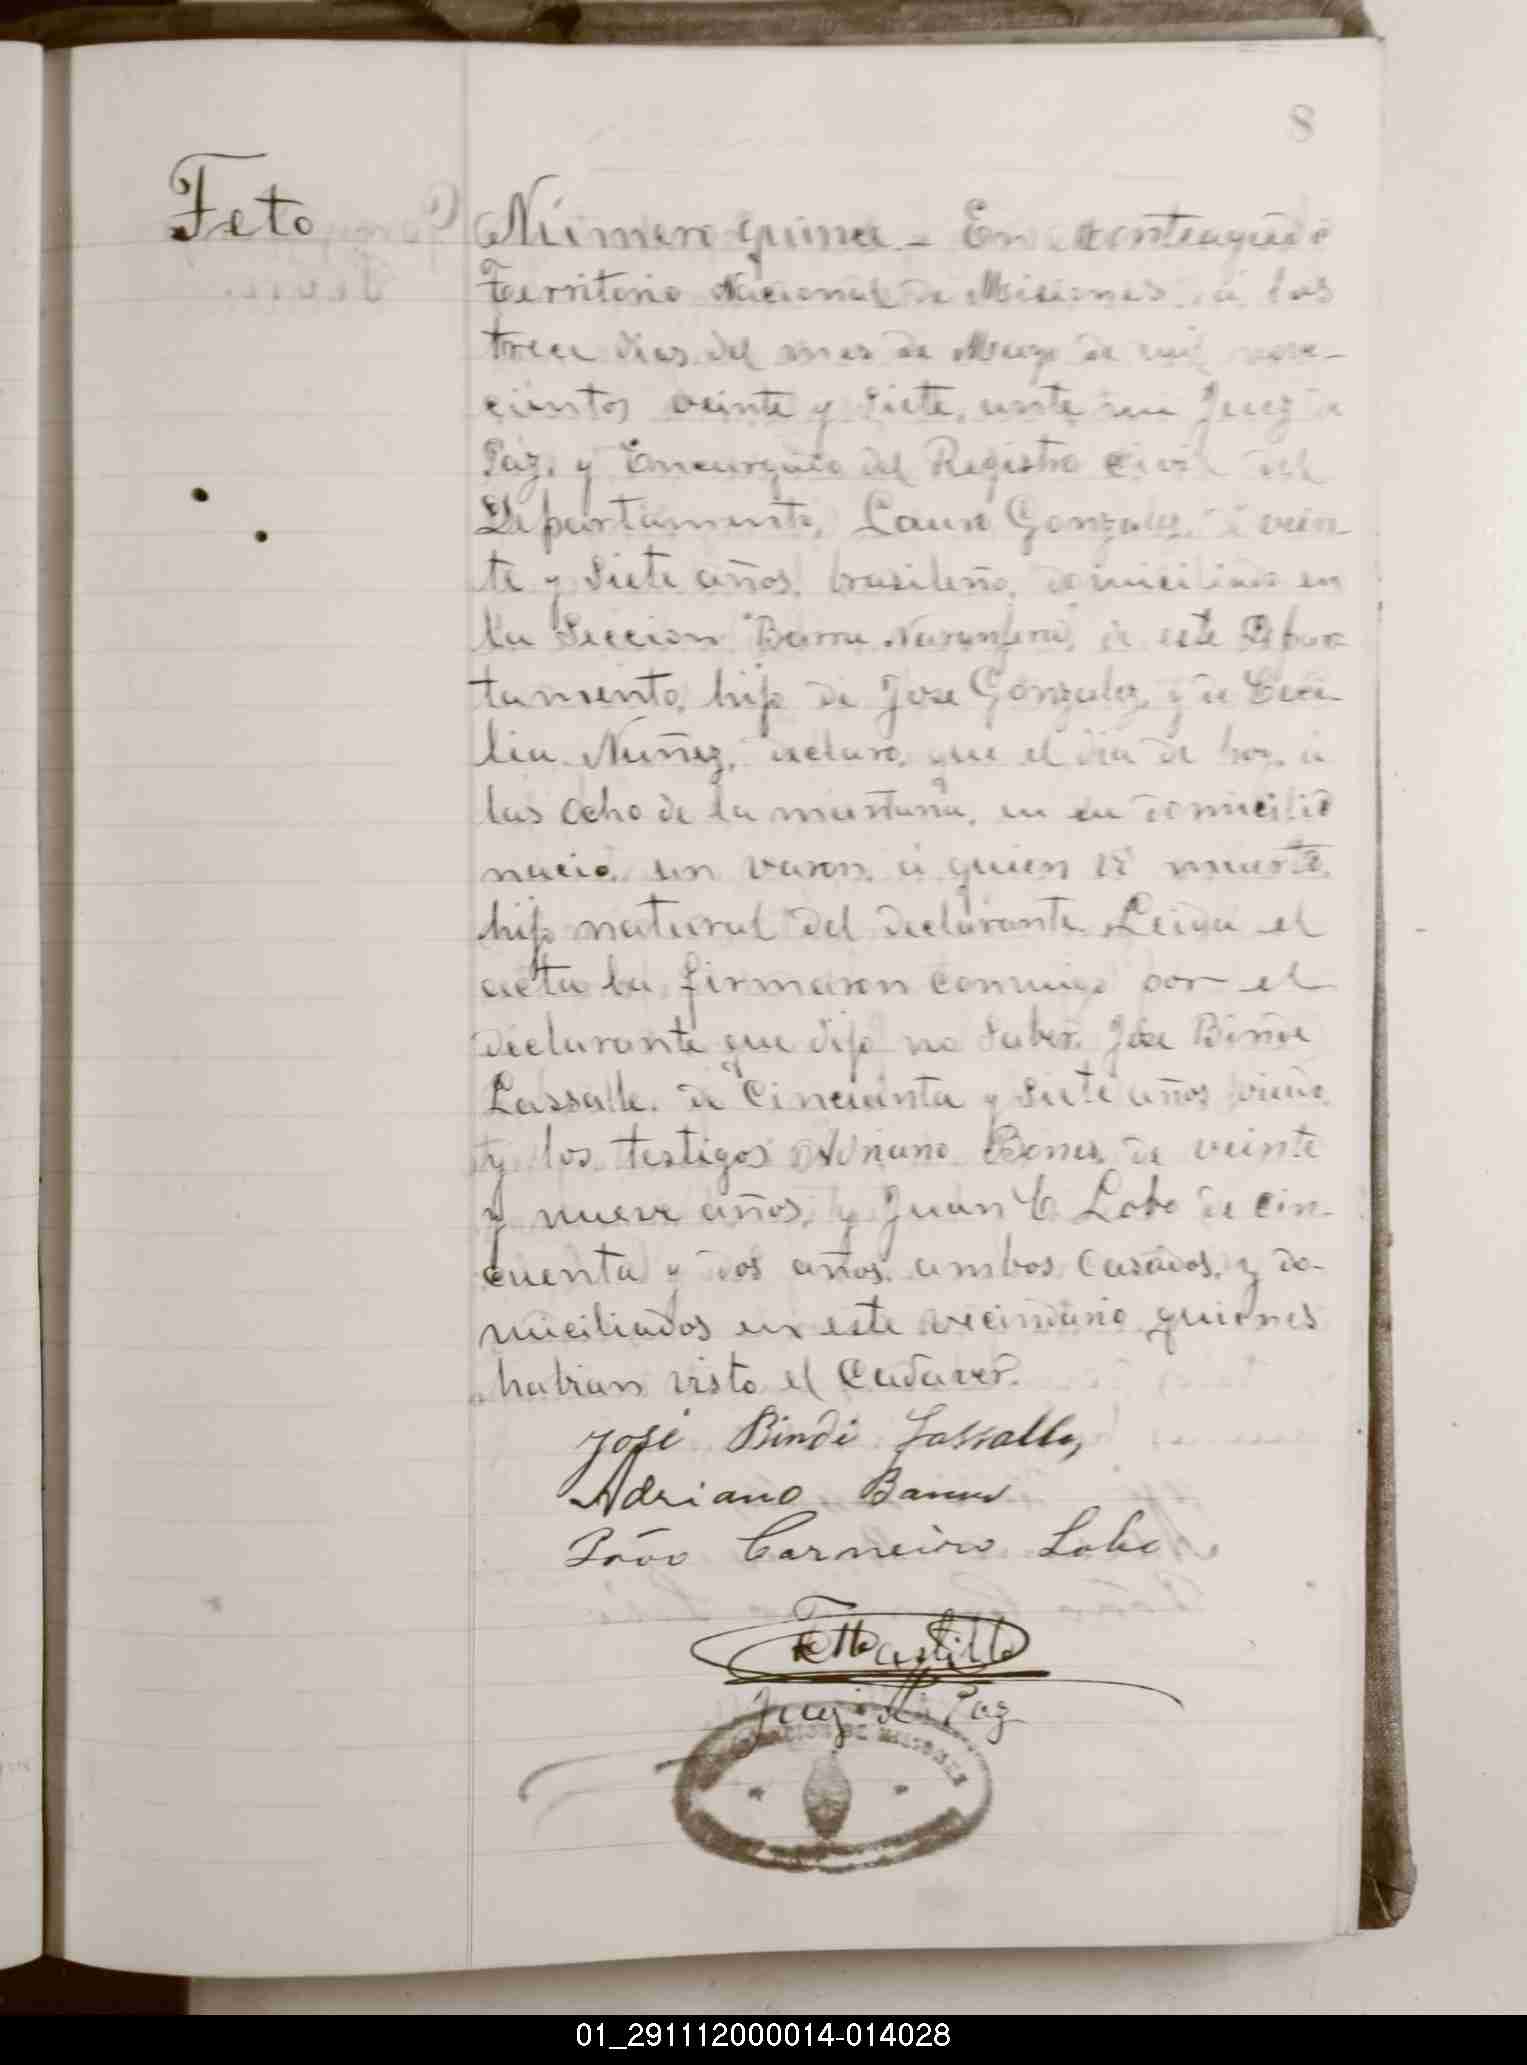 8
Feto
Número quince.- En Monteagudo
Territorio Nacional de Misiones, á los
trece dias del mes de Marzo de mil nove-
cientos veinte y siete, ante mi Juez de
Páz, y Encargado del Registro Civil del
Departamento, Lauro Gonzalez, de vein-
te y siete años, brasileño, domiciliado en
la Seccion "Barra Naranjera" de este Depar
tamento, hijo de Jose Gonzalez, y de Ceci-
lia Nuñez, declaro, que el dia de hoy, á
las ocho de la mañana, en su domicilio
nació, un varon, á quien
hijo natural del declarante. Leida el
acta la firmaron conmigo por el
declarante que dijo no saber, Jose Binde
Lassalle, de cincuenta y siete años,
y los testigos Adriano Bones, de veinte
y nueve años, y Juan C. Lobo de cin-
cuenta y dos años, ambos casados, y do-
miciliados en este vecindario quienes
habian visto el Cadaver.
José Bindé Lassalle,
Adriano
João Carneiro Lobo
Castillo
Juez de Paz
DE MISIONES
01_291112000014-014028